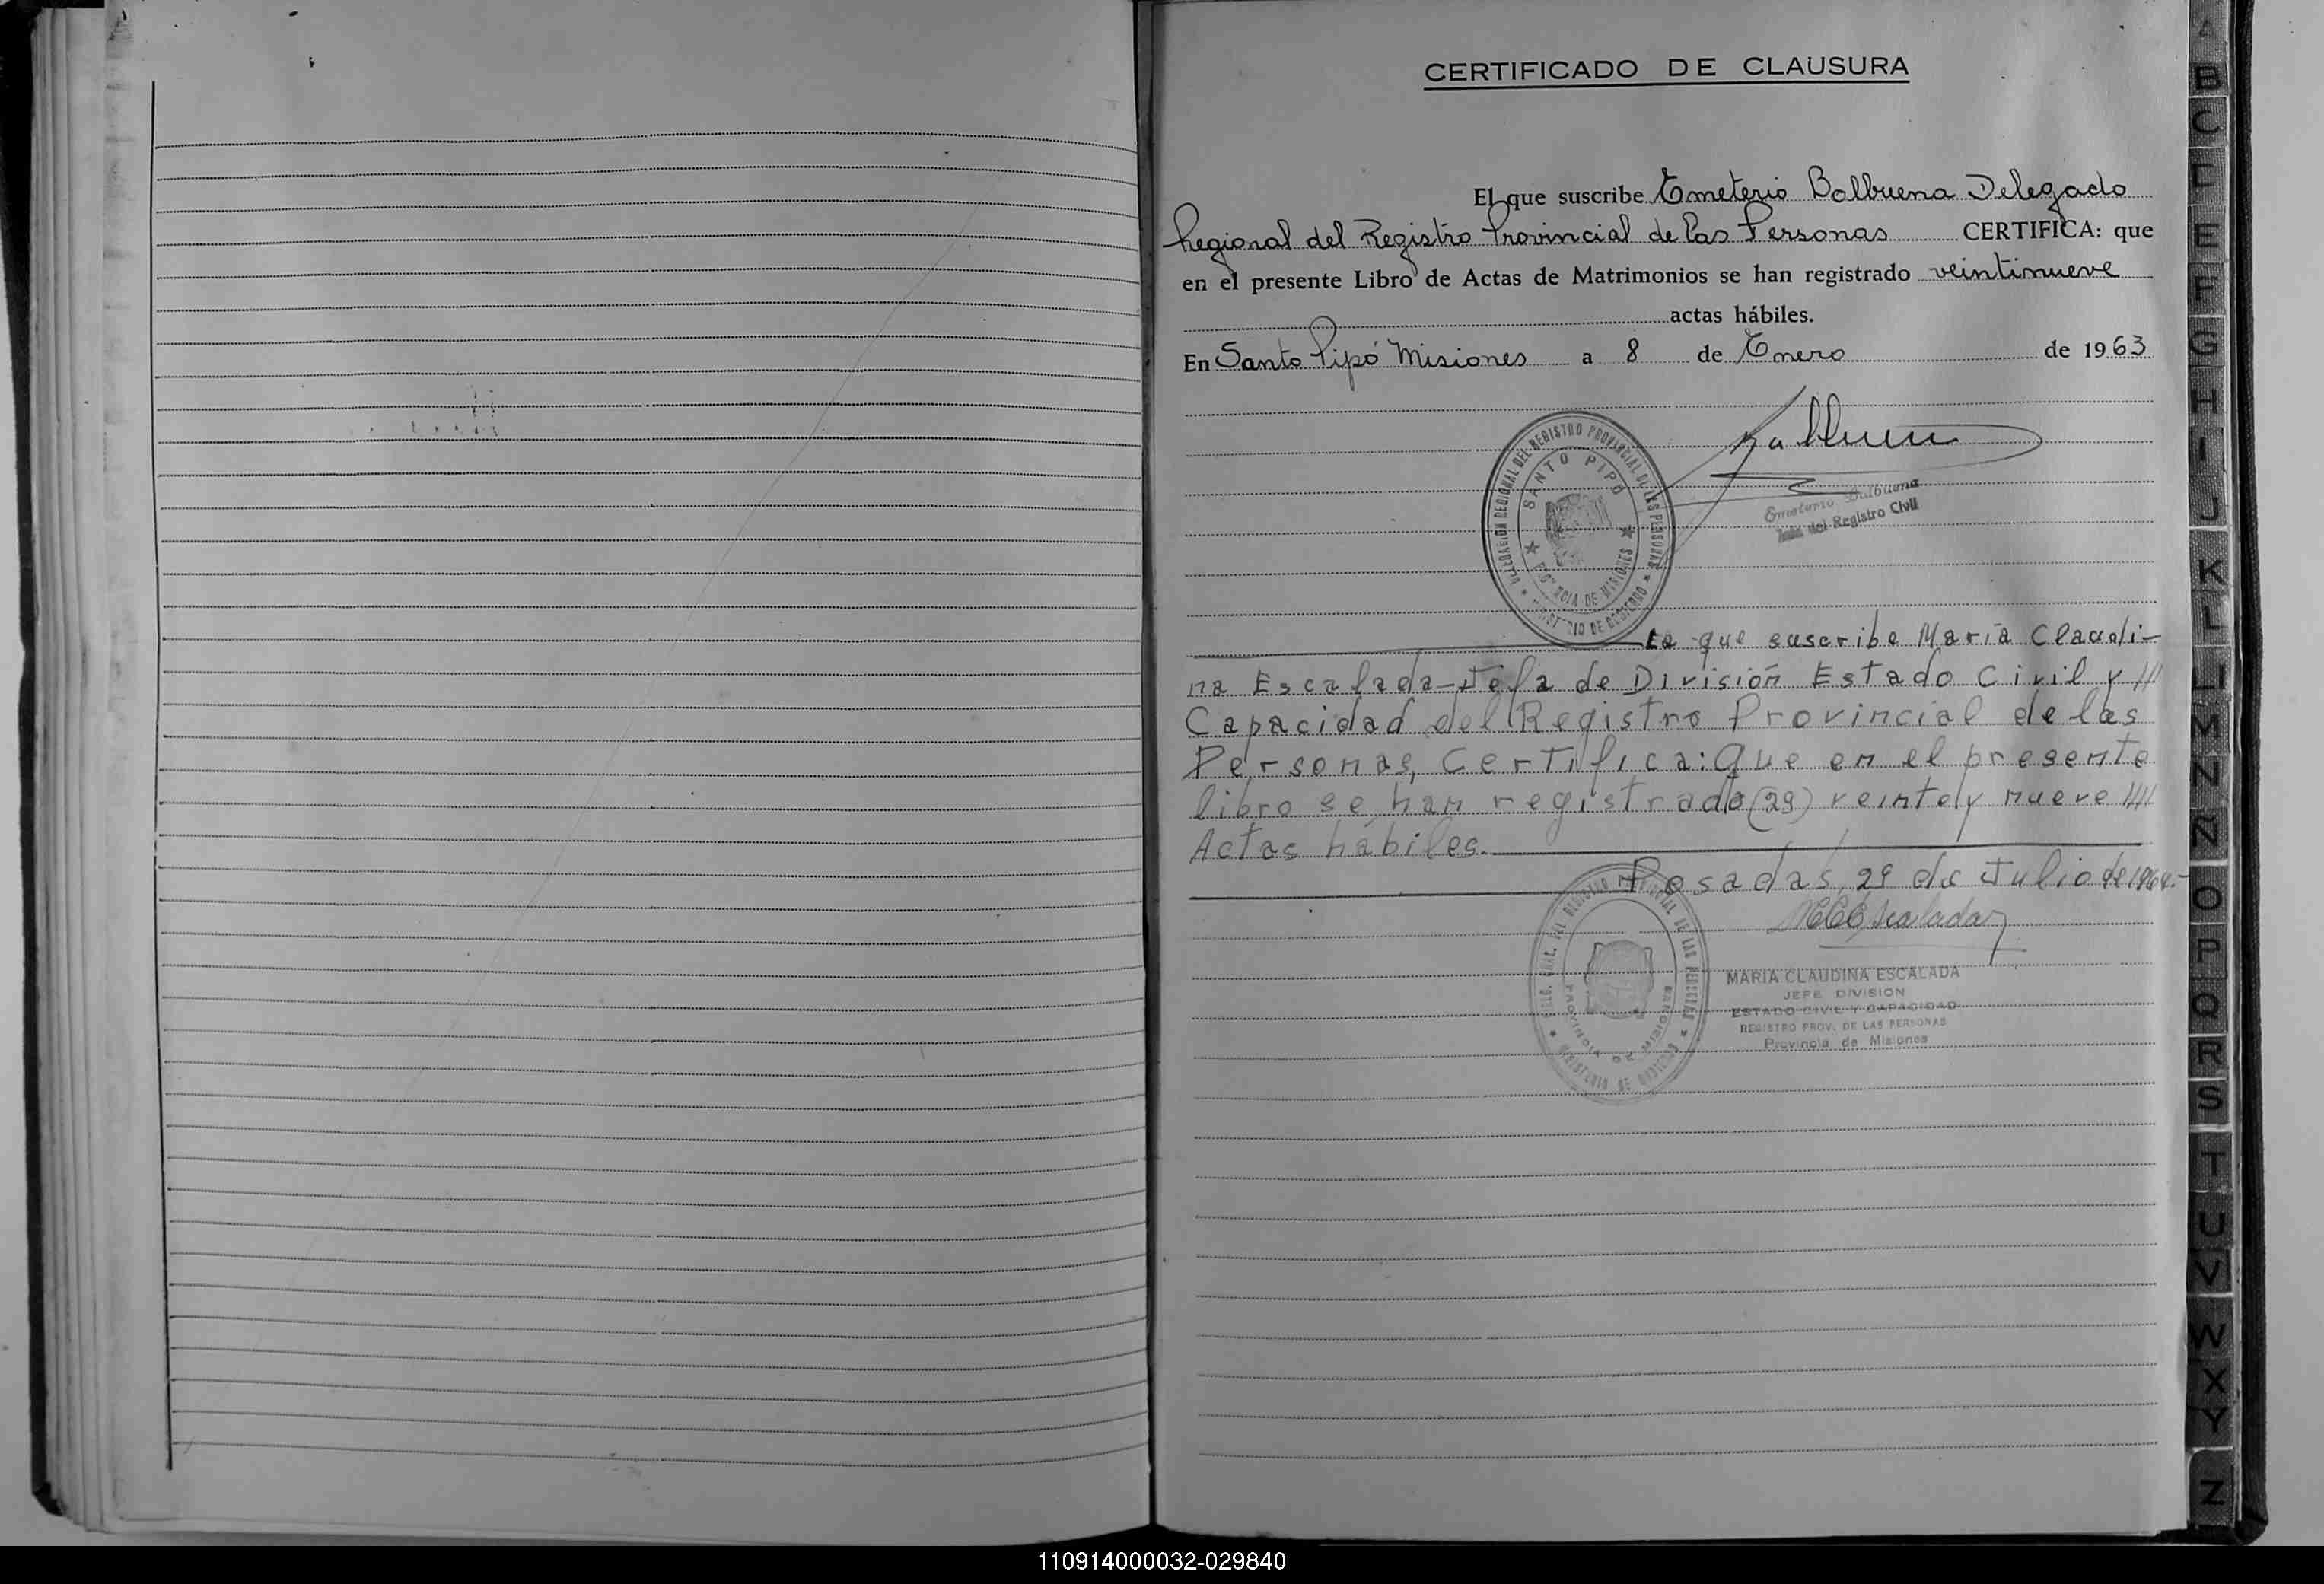 CERTIFICADO DE CLAUSURA
El que suscribe Emeterio Balbuena Delegado
Regional del Registro Provincial de las Personas CERTIFICA: que
en el presente Libro de Actas de Matrimonios se han registrado veintinueve
actas hábiles.
En Santo Pipó Misiones a 8 de Enero de 1963
DELEGACION REGIONAL DEL REGISTRO PROVINCIAL DE LAS PERSONAS
SANTO PIPO
PROVINCIA DE MISIONES
MINISTERIO DE GOBIERNO
Emeterio Balbuena
Jefe del Registro Civil
La que suscribe María Claudi-
na Escalada-Jefa de División Estado Civil y ///
Capacidad del Registro Provincial de las
Personas, Certifica: Que en el presente
libro se han registrado (29) veinte y nueve ////
Actas hábiles.
Posadas, 29 de Julio de 1964.-
MCEscalada
MARIA CLAUDINA ESCALADA
JEFE DIVISION
ESTADO CIVIL Y CAPACIDAD
REGISTRO PROV. DE LAS PERSONAS
Provincia de Misiones
DEL REGISTRO PROVINCIAL DE LAS PERSONAS
PROVINCIA DE MISIONES
MINISTERIO DE GOBIERNO
A
B
C
D
E
F
G
H
I
J
K
L
LL
M
N
Ñ
O
P
Q
R
S
T
U
V
W
X
Y
Z
110914000032-029840